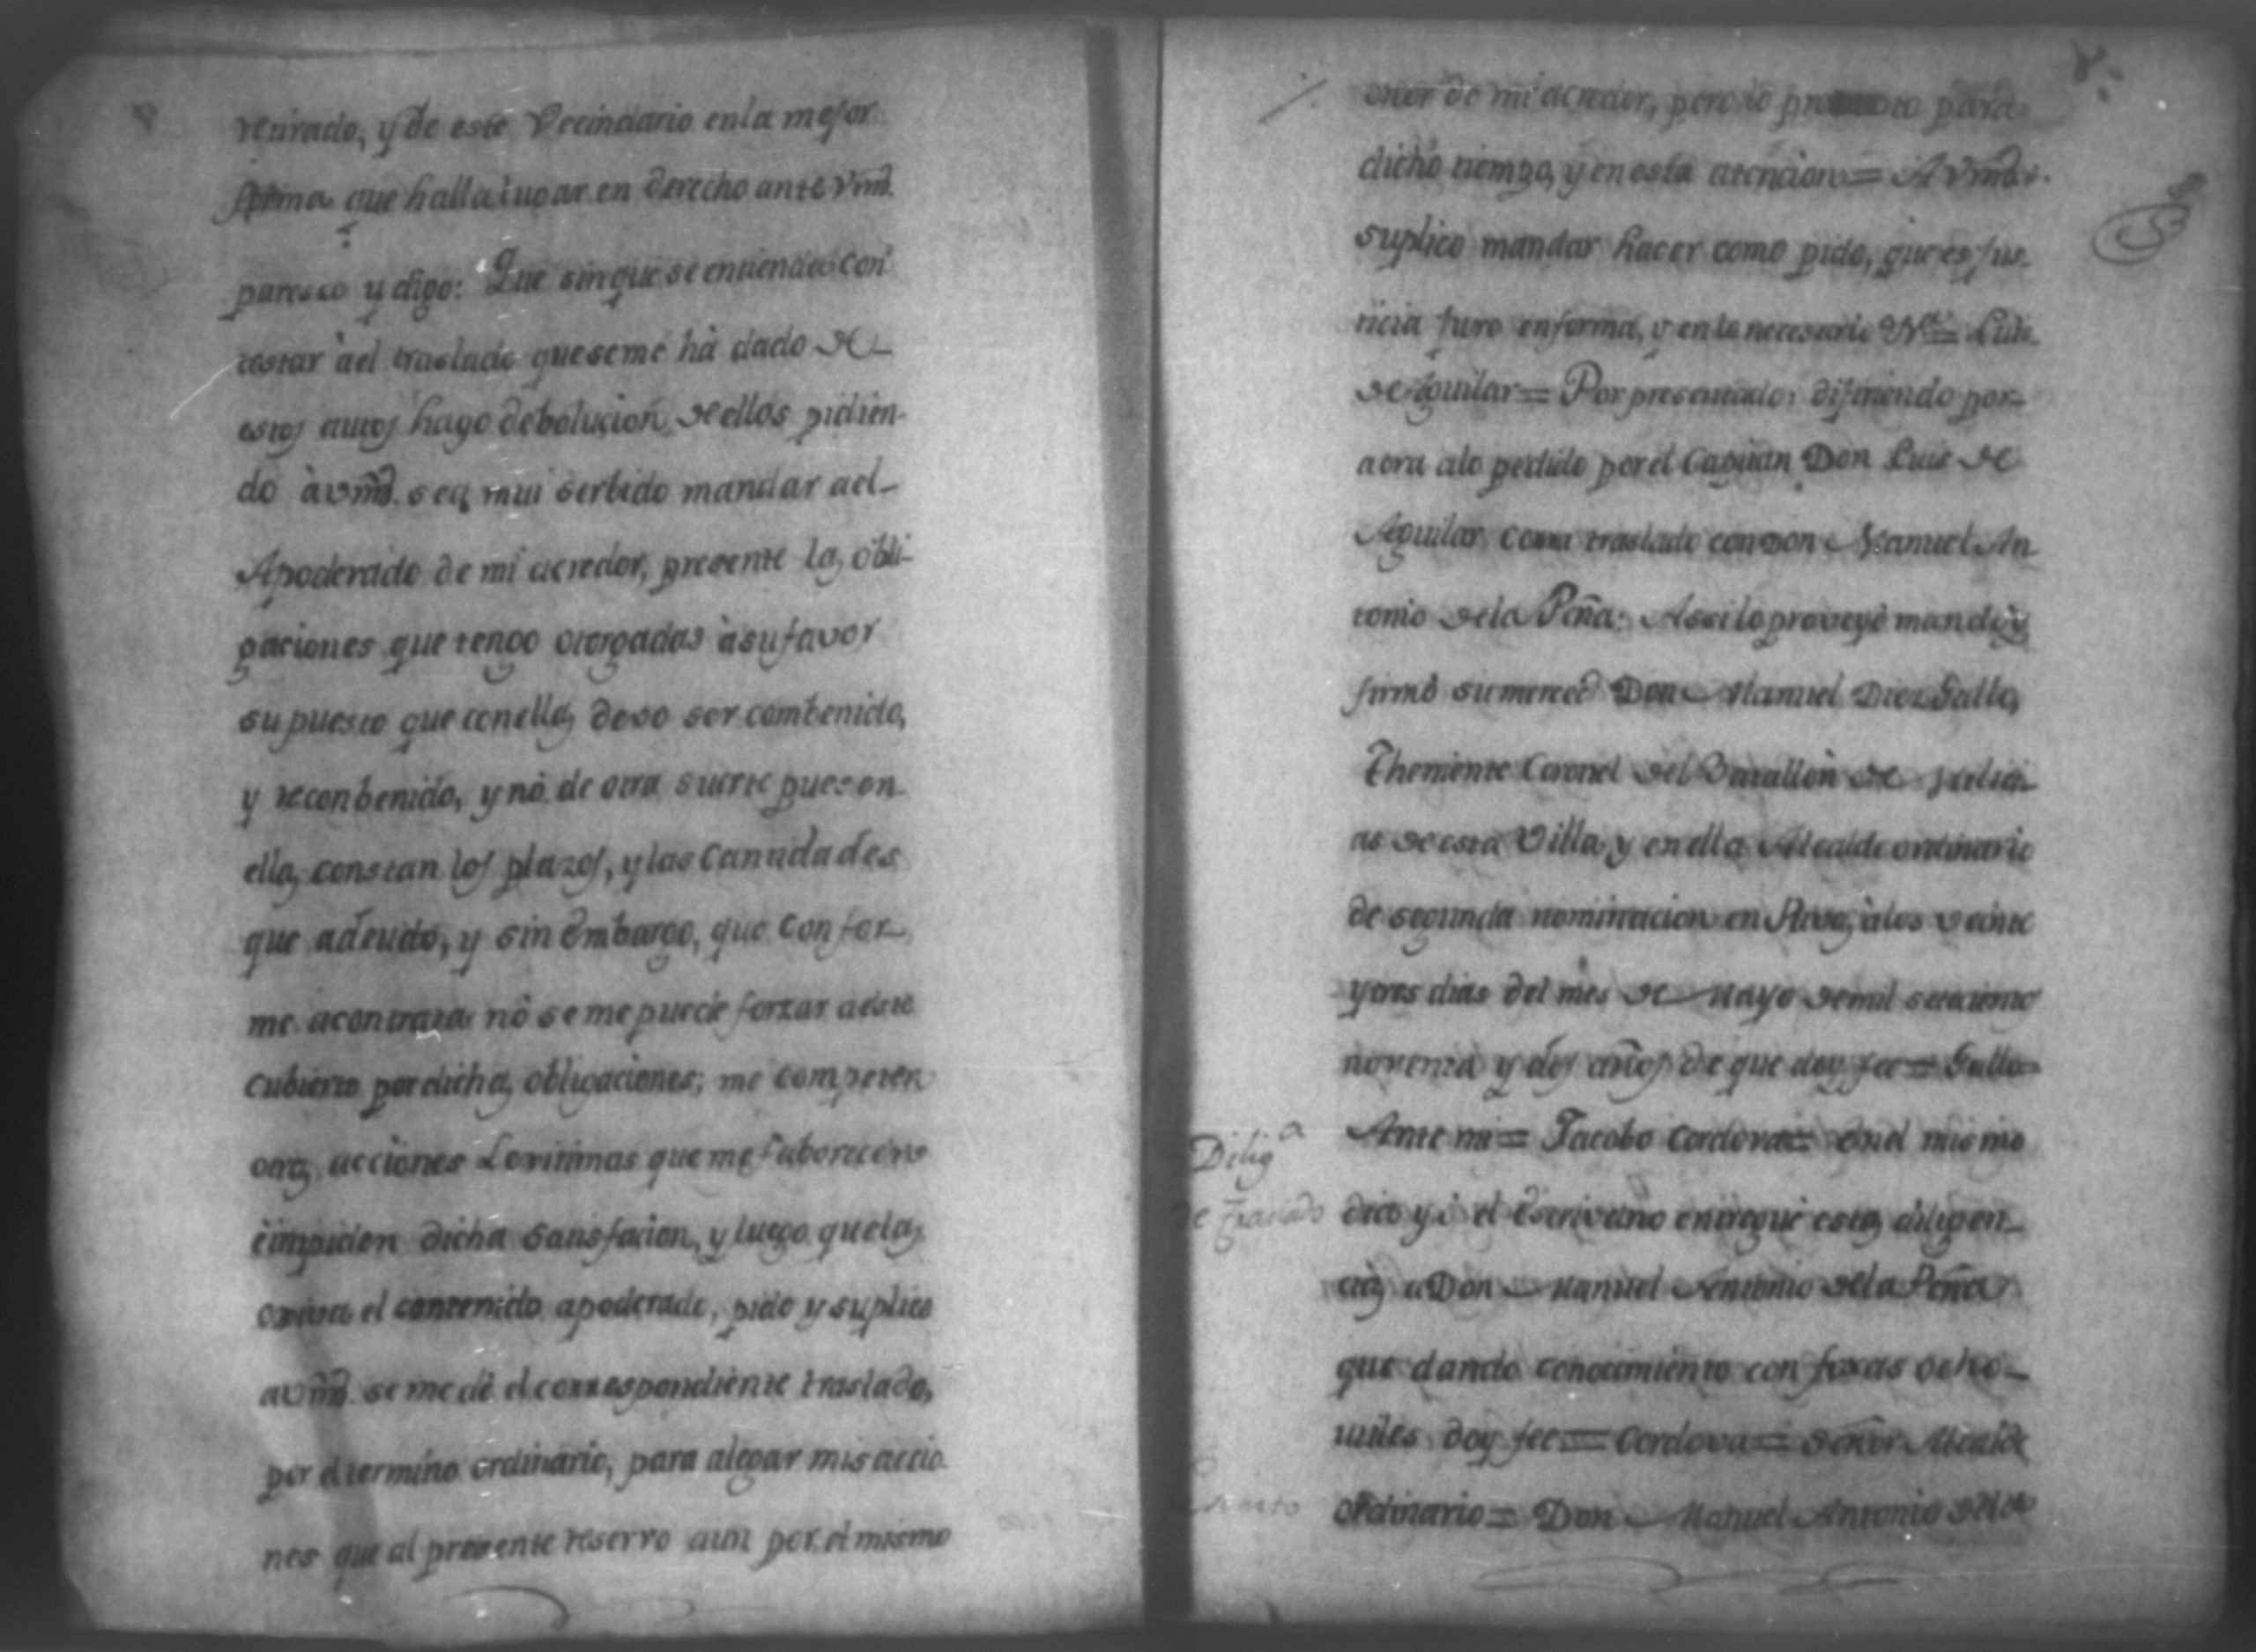 retirado, y de este Vecindario en la mejor
forma que halla lugar en derecho ante Vmd.
paresco y digo: Que sin que se entienda con
testar à el traslado que se me hà dado de
estos autos hago debolucion de ellos pidien-
do à vmd. sea mui serbido mandar a el
Apoderado de mi acredor, presente las obli-
gaciones que tengo otorgadas à su favor
supuesto que con ellas devo ser combenido,
y reconbenido, y nò de otra suerte pues en
ellas constan los plazos, y las Cantidades
que adeudo, y sin embargo, que confor-
me a contrata nò se me puede forzar a este
cubierto por dichas obligaciones; me competen
otras acciones Lexitimas que me faborecen
è impiden dicha sansfacion, y luego que las
exiva el contenido apoderado, pido y suplico
a vmd. se me dè el correspondiente traslado,
por el termino ordinario, para alegar mis accio
nes que al presente reservo aun por el mismo
onor de mi acredor, pero lo para
dicho tiempo, y en esta atencion = A vmd.
suplico mandar hacer como pido, que es jus-
ticia juro en forma, y en lo necesario &a = Luis
de Aguilar = Por presentado: difiriendo por
aora a lo pedido por el Capitan Don Luis de
Aguilar corra traslado con Don Manuel An
tonio de la Peña: Assi lo proveyò mandò y
firmò su merced Don Manuel Diez Gallo,
Theniente Coronel del Batallon de Milici
as de esta Villa, y en ella Alcalde ordinario
de segunda nominacion en Rivas, à los veinte
y tres dias del mes de Mayo de mil setecientos
noventa y dos años de que doy fee = Gallo =
Diliga
Ante mi = Jacobo Cordova = En el mismo
de traslado
dia yo el Escrivano entregué estas diligen-
cias a Don Manuel Antonio de la Peña
que dando conocimiento con foxas ocho
utiles doy fee = Cordova = Señor Alcalde
Escrito
ordinario = Don Manuel Antonio de la